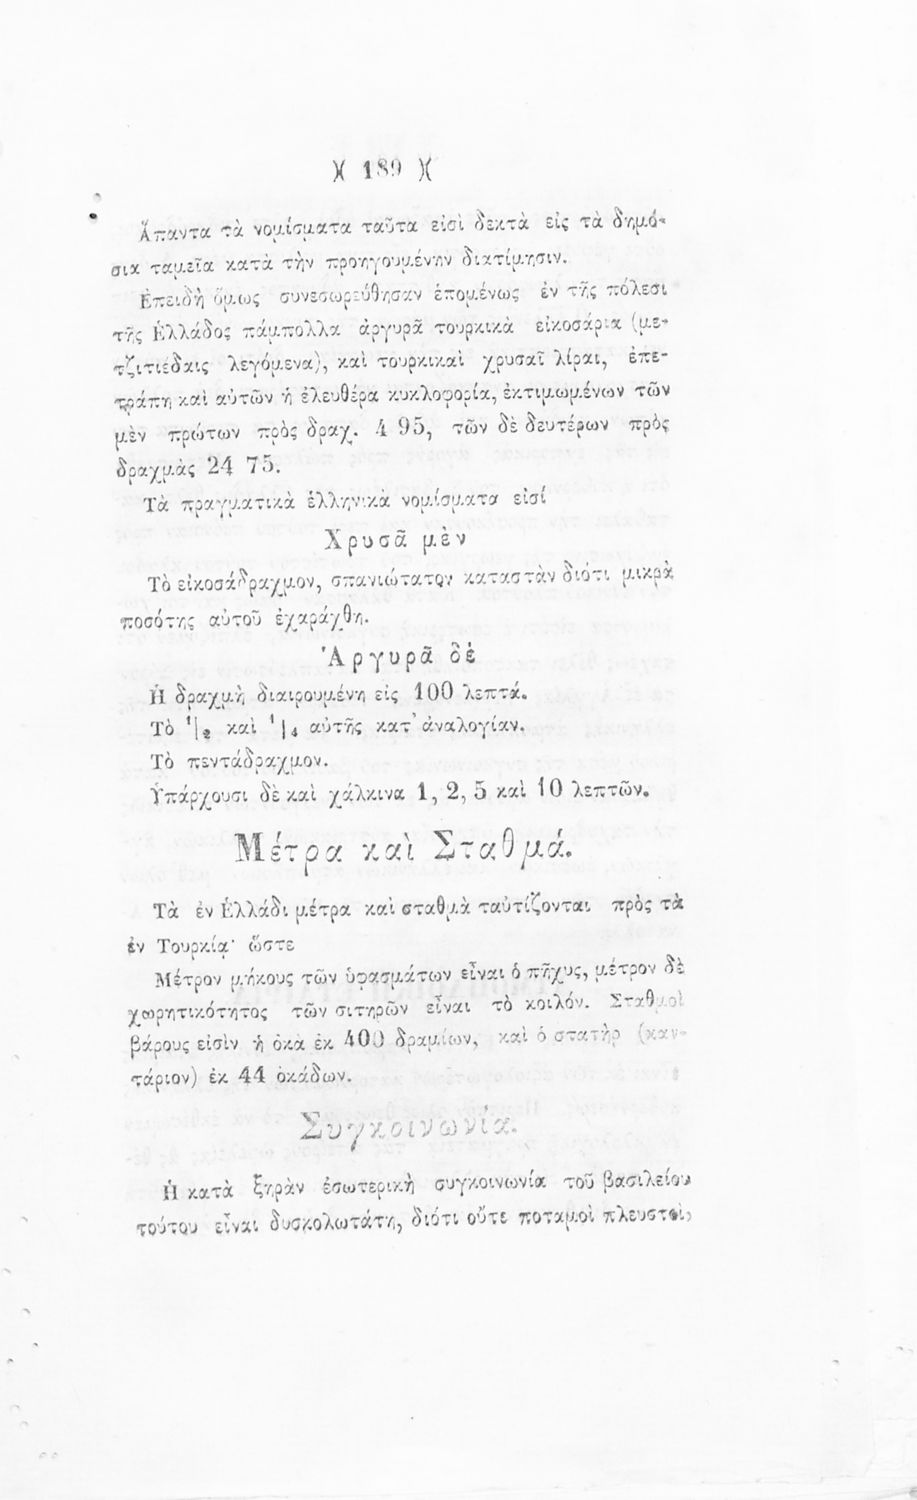 )( 189 )(
Ἅπαντα τὰ νομίσματα ταῦτα εἰσὶ δεκτὰ εἰς τὰ δημό-
σια ταμεῖα κατὰ τὴν προηγουμένην διατίμησιν.
Ἐπειδὴ ὅμως συνεσωρεύθησαν ἑπομένως ἐν τῆς πόλεσι
τῆς Ἑλλάδος πάμπολλα ἀργυρᾶ τουρκικὰ εἰκοσάρια (με-
τζιτιέδαις λεγόμενα), καὶ τουρκικαὶ χρυσαῖ λίραι, ἐπε-
τράπη καὶ αὐτῶν ἡ ἐλευθέρα κυκλοφορία, ἐκτιμωμένων τῶν
μὲν πρώτων πρὸς δραχ. 4 95, τῶν δὲ δευτέρων πρὸς
δραχμὰς 24 75.
Τὰ πραγματικὰ ἑλληνικὰ νομίσματα εἰσί
Χρυσᾶ μὲν
Τὸ εἰκοσάδραχμον, σπανιώτατον καταστὰν διότι μικρὰ
ποσότης αὐτοῦ ἐχαράχθη.
Ἀργυρᾶ δέ
Ἡ δραχμὴ διαιρουμένη εἰς 100 λεπτά.
Τὸ 1|2 καὶ 1|4 αὐτῆς κατ' ἀναλογίαν.
Τὸ πεντάδραχμον.
Ὑπάρχουσι δὲ καὶ χάλκινα 1, 2, 5 καὶ 10 λεπτῶν.
Μέτρα καὶ Σταθμά.
Τὰ ἐν Ἑλλάδι μέτρα καὶ σταθμὰ ταὐτίζονται πρὸς τὰ
ἐν Τουρκίᾳ· ὥστε
Μέτρον μήκους τῶν ὑφασμάτων εἶναι ὁ πῆχυς, μέτρον δὲ
χωρητικότητος τῶν σιτηρῶν εἶναι τὸ κοιλόν. Σταθμοὶ
βάρους εἰσὶν ἡ ὀκὰ ἐκ 400 δραμίων, καὶ ὁ στατὴρ (καν-
τάριον) ἐκ 44 ὀκάδων.
Συγκοινωνία.
Ἡ κατὰ ξηρὰν ἐσωτερικὴ συγκοινωνία τοῦ βασιλείου
τούτου εἶναι δυσκολωτάτη, διότι οὔτε ποταμοὶ πλευστοὶ,